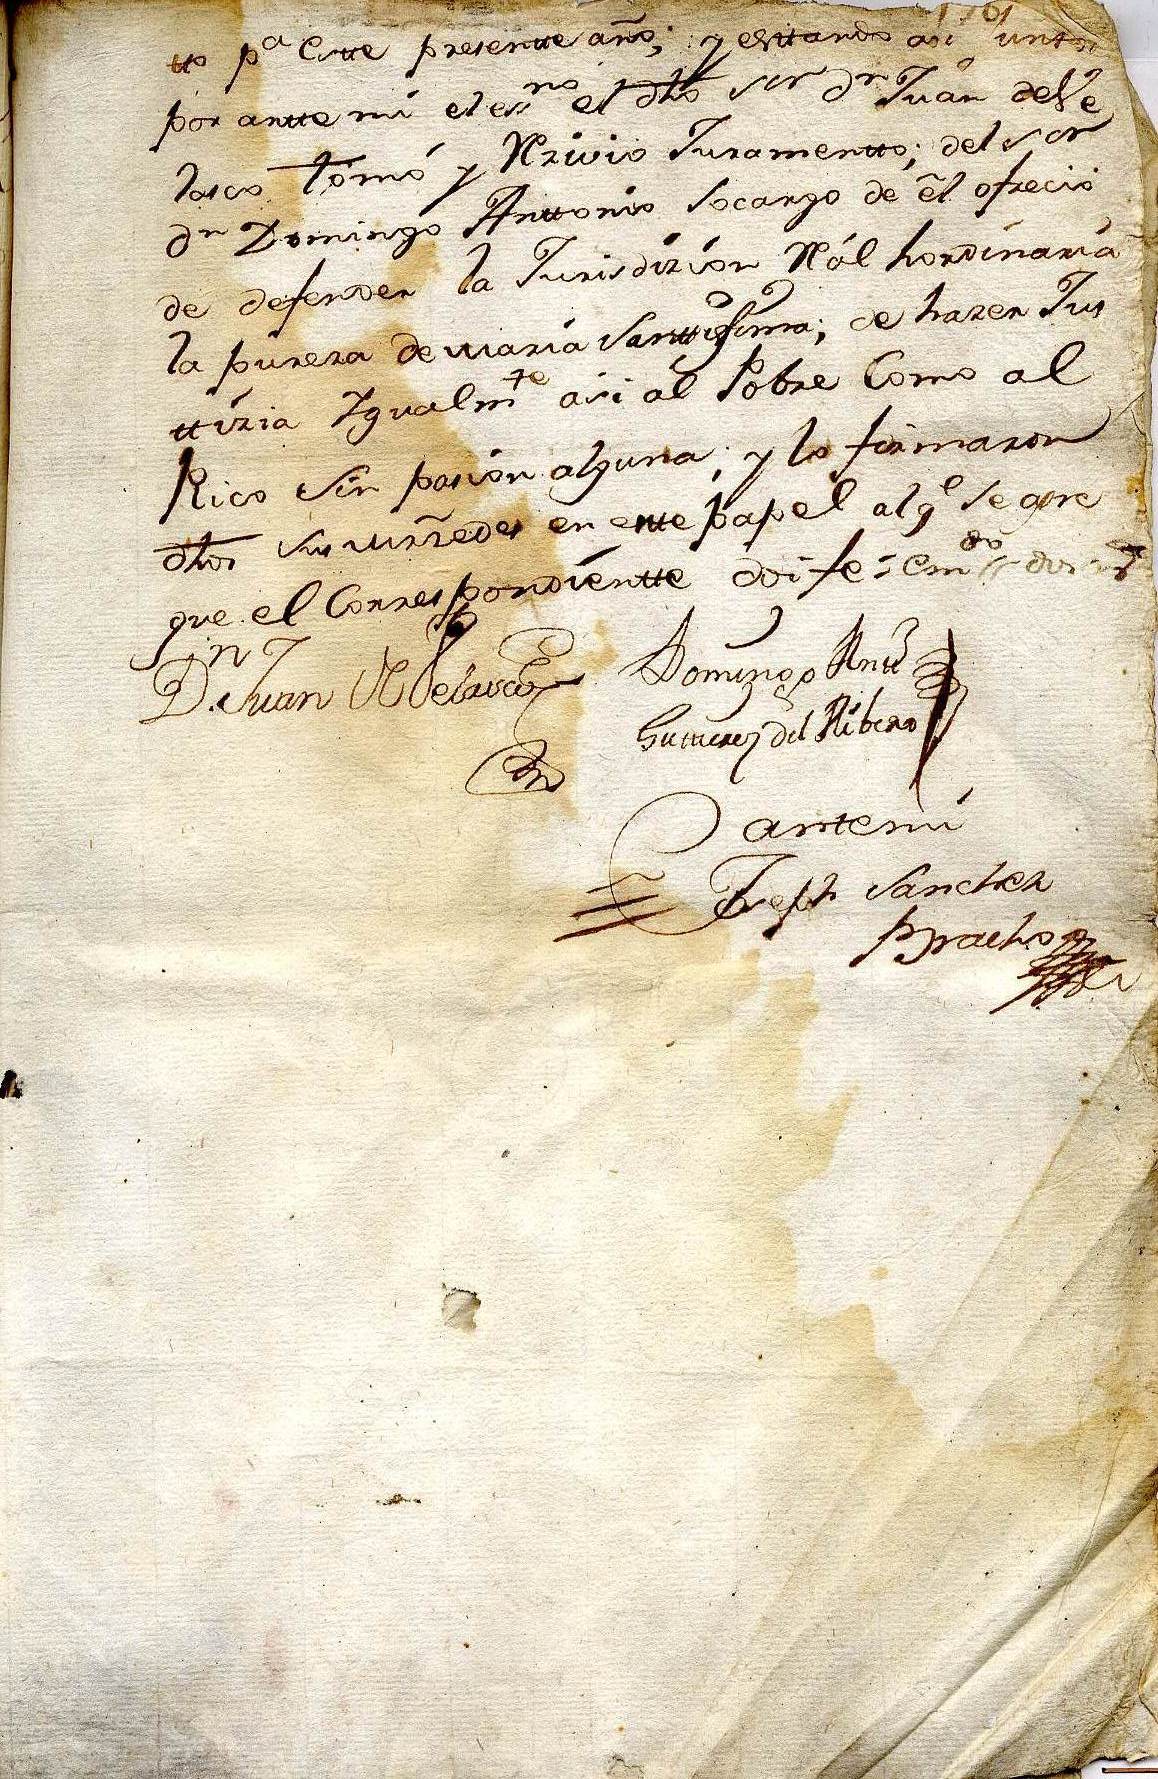 1761
tto pª Este presentte año; y esttando asi Juntos
por antte mi el essno el dho ssr dn Juan de Ve
lasco tomó y Rzivio Juramentto; del ssr
dn Domingo Anttonio socargo de el ofrecio
de defender la Jurisdizion Rál hordinaria
la pureza de maria Santtissima; de hazer Jus
ttizia Igualmte asi al Pobre Como al
Rico sin pasion alguna; y lo firmaron
dhos sus mrzedes en estte papel al q se agre
gue el Correspondientte doi fe = Emdo
Dn Juan Velasco Domingo Antt
Guttierrez del Ribero
antemi
Joseph Sanchez
Bracho